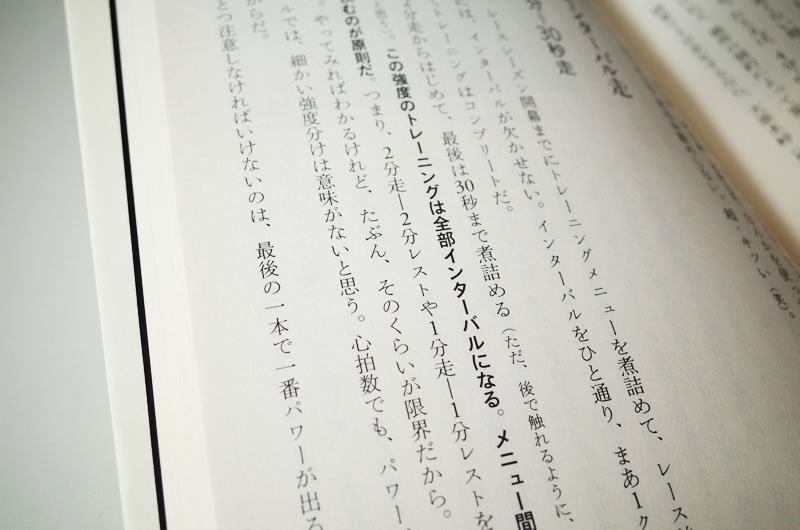 ンターバル走
分―30秒走
レースシーズン開幕までにトレーニングメニューを煮詰めて、レース
には、インターバルが欠かせない。インターバルをひと通り、まあ1ク
トレーニングはコンプリートだ。
2分走からはじめて、最後は30秒まで煮詰める（ただ、後で触れるように、
と思う）。この強度のトレーニングは全部インターバルになる。メニュー間
むのが原則だ。つまり、2分走―2分レストや1分走―1分レストを
。やってみればわかるけれど、たぶん、そのくらいが限界だから。
ルでは、細かい強度分けは意味がないと思う。心拍数でも、パワー
からだ。
とつ注意しなければいけないのは、最後の一本で一番パワーが出る